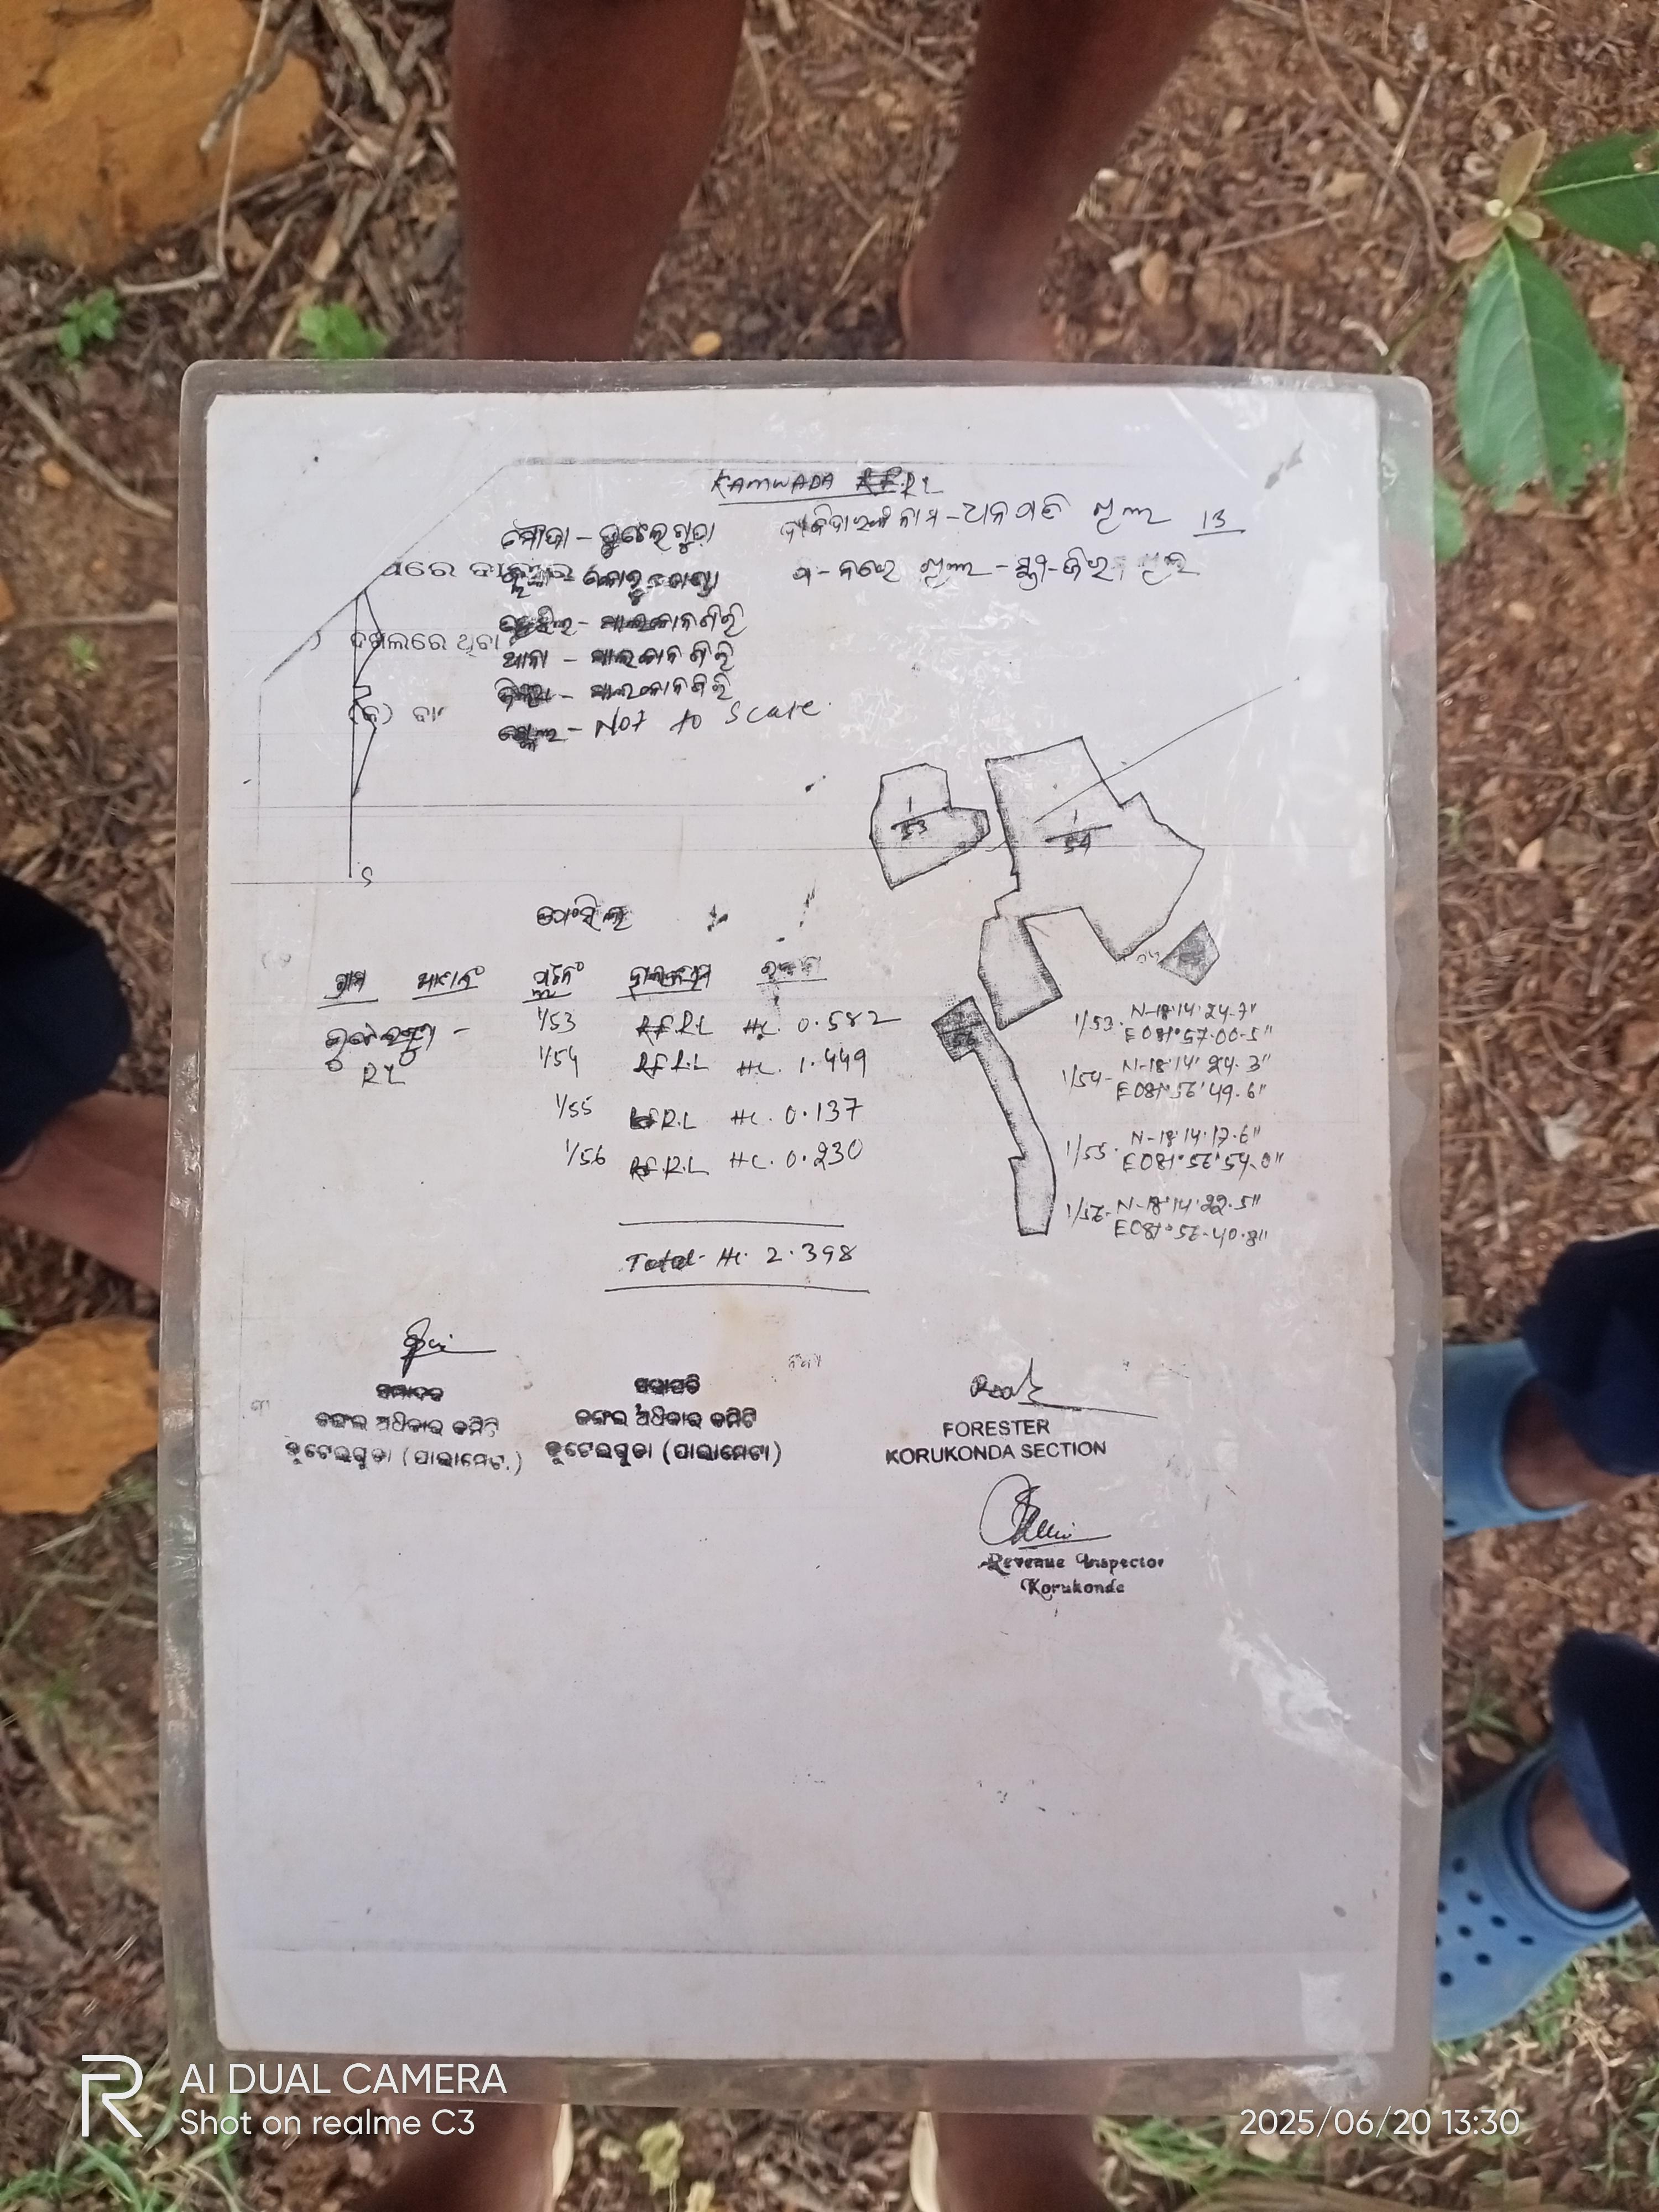 KAMWADA R.F.R.L
ମୌଜା - ଭୁଟେଲଗୁଡ଼ା
ନାମ - ଧନପତି ଖିଲ 13
କୋରୁକୋଣ୍ଡା
ତହସିଲ - ମାଲକାନଗିରି
ଦଖଲରେ ଥିବା
ଥାନା - ମାଲକାନଗିରି
ଜିଲ୍ଲା - ମାଲକାନଗିରି
ସ୍କେଲ - Not to Scale
1/53
1/54
S
ଗ୍ରାମ ରକବା
1/53 R.F.R.L Hc. 0.582
R.L
1/54 R.F.R.L Hc. 1.449
1/55 R.F.R.L Hc. 0.137
1/56 R.F.R.L Hc. 0.230
Total - Hc. 2.398
1/53. N-18°14'24.7"
E 081°57'00.5"
1/54- N-18°14'24.3"
E 081°56'49.6"
1/55. N-18°14'17.6"
E 081°56'54.0"
1/56- N-18°14'22.5"
E 081°56'40.8"
ସମ୍ପାଦକ
ଜଙ୍ଗଲ ଅଧିକାର କମିଟି
ଭୁଟେଲଗୁଡା (ପାଲାମେଟା)
ସଭାପତି
ଜଙ୍ଗଲ ଅଧିକାର କମିଟି
ଭୁଟେଲଗୁଡା (ପାଲାମେଟା)
FORESTER
KORUKONDA SECTION
Revenue Inspector
Korukonda
AI DUAL CAMERA
Shot on realme C3
2025/06/20 13:30